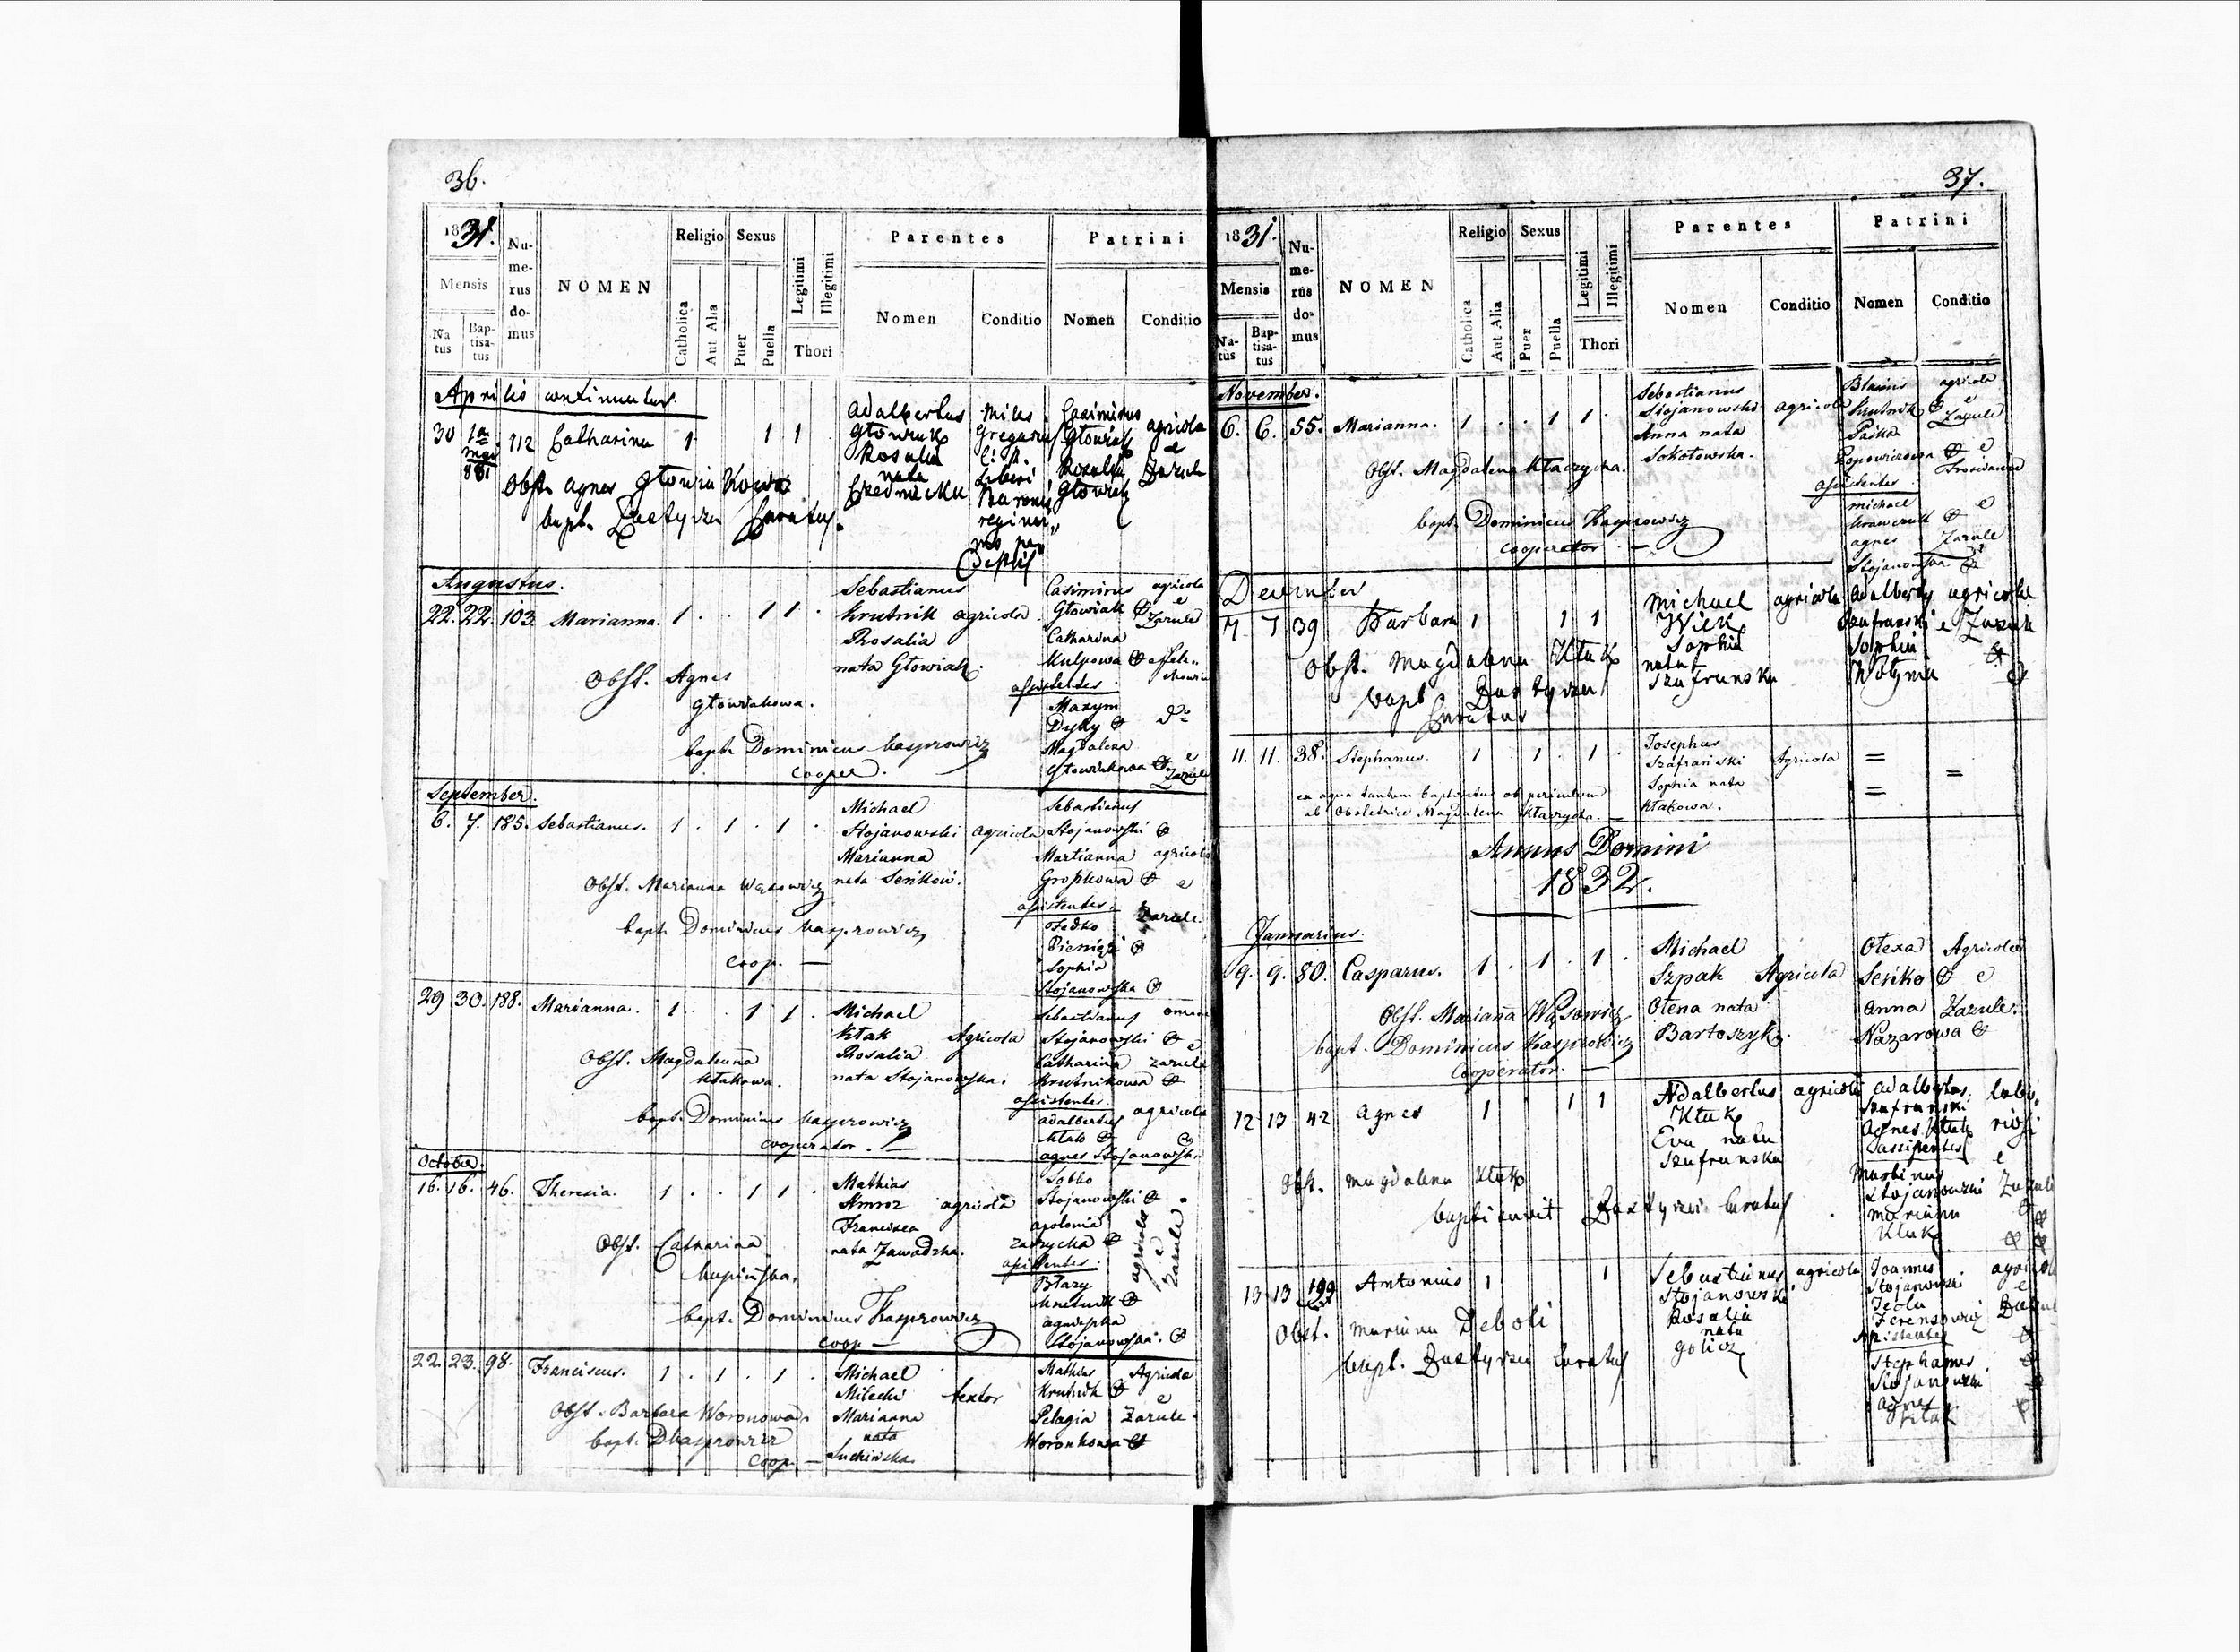 36.
1831.
Mensis
Na tus
Bap- tisa- tus
Nu- me- rus do- mus
NOMEN
Religio
Catholica
Aut Alia
Sexus
Puer
Puella
Legitimi
Illegitimi
Thori
Parentes
Nomen
Conditio
Patrini
Nomen
Conditio
Aprilis continuatur
30 1a 112 Catharina 1 1 1
Adalbertus
Rosalia
nata
Miles
Casimirus
agricola
e
Rosalia
Zarule
Obst. Agnes
bapt. Curatus.
Augustus.
22. 22. 103. Marianna. 1 . . 1 1 .
Sebastianus
Krutnik agricola
Rosalia
nata Głowiak.
Casimirus agricola
Głowiak e
Zarule
Catharina
Kulpowa
assistentes.
Maxym
Dyky
Magdalena
Głowiakowa e
Zarule
Obst. Agnes
Głowiakowa.
bapt. Dominicus Kasprowicz
Cooper.
September.
6. 7. 185. Sebastianus. 1 . 1 . 1 .
Michael
Stojanowski Agricola
Marianna
nata Seńkow.
Sebastianus
Stojanowski
Martianna agricola
Gropkowa e
assistentes.
Zarule.
Sophia
Stojanowska
Obst. Marianna Wąsowicz
bapt. Dominicus Kasprowicz
coop. —
29 30. 188. Marianna. 1 . . 1 1 .
Michael
Kłak Agricola
Rosalia
nata Stojanowska.
Sebastianus
Stojanowski e
Catharina Zarule
Krutnikowa
assistentes
Adalbertus agricola
Kłak
Agnes Stojanowska
Obst. Magdalena
Kłakowa.
bapt. Dominicus Kasprowicz
cooperator. —
October.
16. 16. 46. Theresia. 1 . . 1 1 .
Mathias
Amroz agricola
Francisca
nata Zawadzka.
Sobko
Stojanowski
apolonia
assistentes.
Błazy
Krutnik
agnieszka
Stojanowska.
agricola
e
Zarule
Obst. Catharina
Kupińska.
bapt. Dominicus Kasprowicz
coop —
22. 23. 98. Franciscus. 1 . 1 . 1 .
Michael
Milecki textor
Marianna
nata
Suchińska
Mathias Agricola
Krutnik e
Pelagia Zarule.
Woronkowa
Obst. Barbara Woronowa.
bapt. DKasprowicz
Coop. —
37.
1831.
Mensis
Na- tus
Bap- tisa- tus
Nu- me- rus do- mus
NOMEN
Religio
Catholica
Aut Alia
Sexus
Puer
Puella
Legitimi
Illegitimi
Thori
Parentes
Nomen
Conditio
Patrini
Nomen
Conditio
November.
6. 6. 55. Marianna. 1 . . 1 1 .
Sebastianus
Stojanowski agricola
Anna nata
Sokołowska.
Blasius agricola
Krutnik e
Zarule
Paśka
assistentes.
Michael
Krawczuk e
agnes Zarule
Stojanowska
Obst. Magdalena Kłaczycha.
bapt. Dominicus Kasprowicz
Cooperator. —
December
7. 7 39 Barbara 1 1 1
Michael agricola
Wilk
Sophia
nata
Szafranska
Adalbertus agricola
Szafranski e Zarule
Sophia
Obst. Magdalena Kłak
bapt.
Curatus
11. 11. 38. Stephanus. 1 1 . 1 .
Josephus
Szafrański Agricola
Sophia nata
Kłakowa.
= = =
ex aqua tantum baptisatus ob periculum
ab Obstetrice Magdalena Kłaczycha. —
Annus Domini
1832.
Januarius.
9. 9. 80. Casparus. 1 . 1 . 1 .
Michael
Szpak Agricola
Olena nata
Bartoszyk.
Olexa Agricola
Seńko e
Anna Zarule.
Nazarowa
Obst. Marianna Wąsowicz
bapt. Dominicus Kasprowicz
Cooperator. —
12 13 42 Agnes 1 1 1
Adalbertus agricola
Kłak
Eva nata
Szafranska
Adalbertus
Szafranski
Agnes Kłak
e
Martinus
Stojanowski Zarule
Marianna
Kłak
Obst. Magdalena Kłak
baptisavit Curatus
13 13 199 Antonius 1 1
Sebastianus agricola
Stojanowski
Rosalia
nata
Golicz
Joannes agricola
Stojanowski e
Tecla
Stephanus
Stojanowski
Agnes
Kłak
Obst. Marianna Deboli
bapt. Curatus